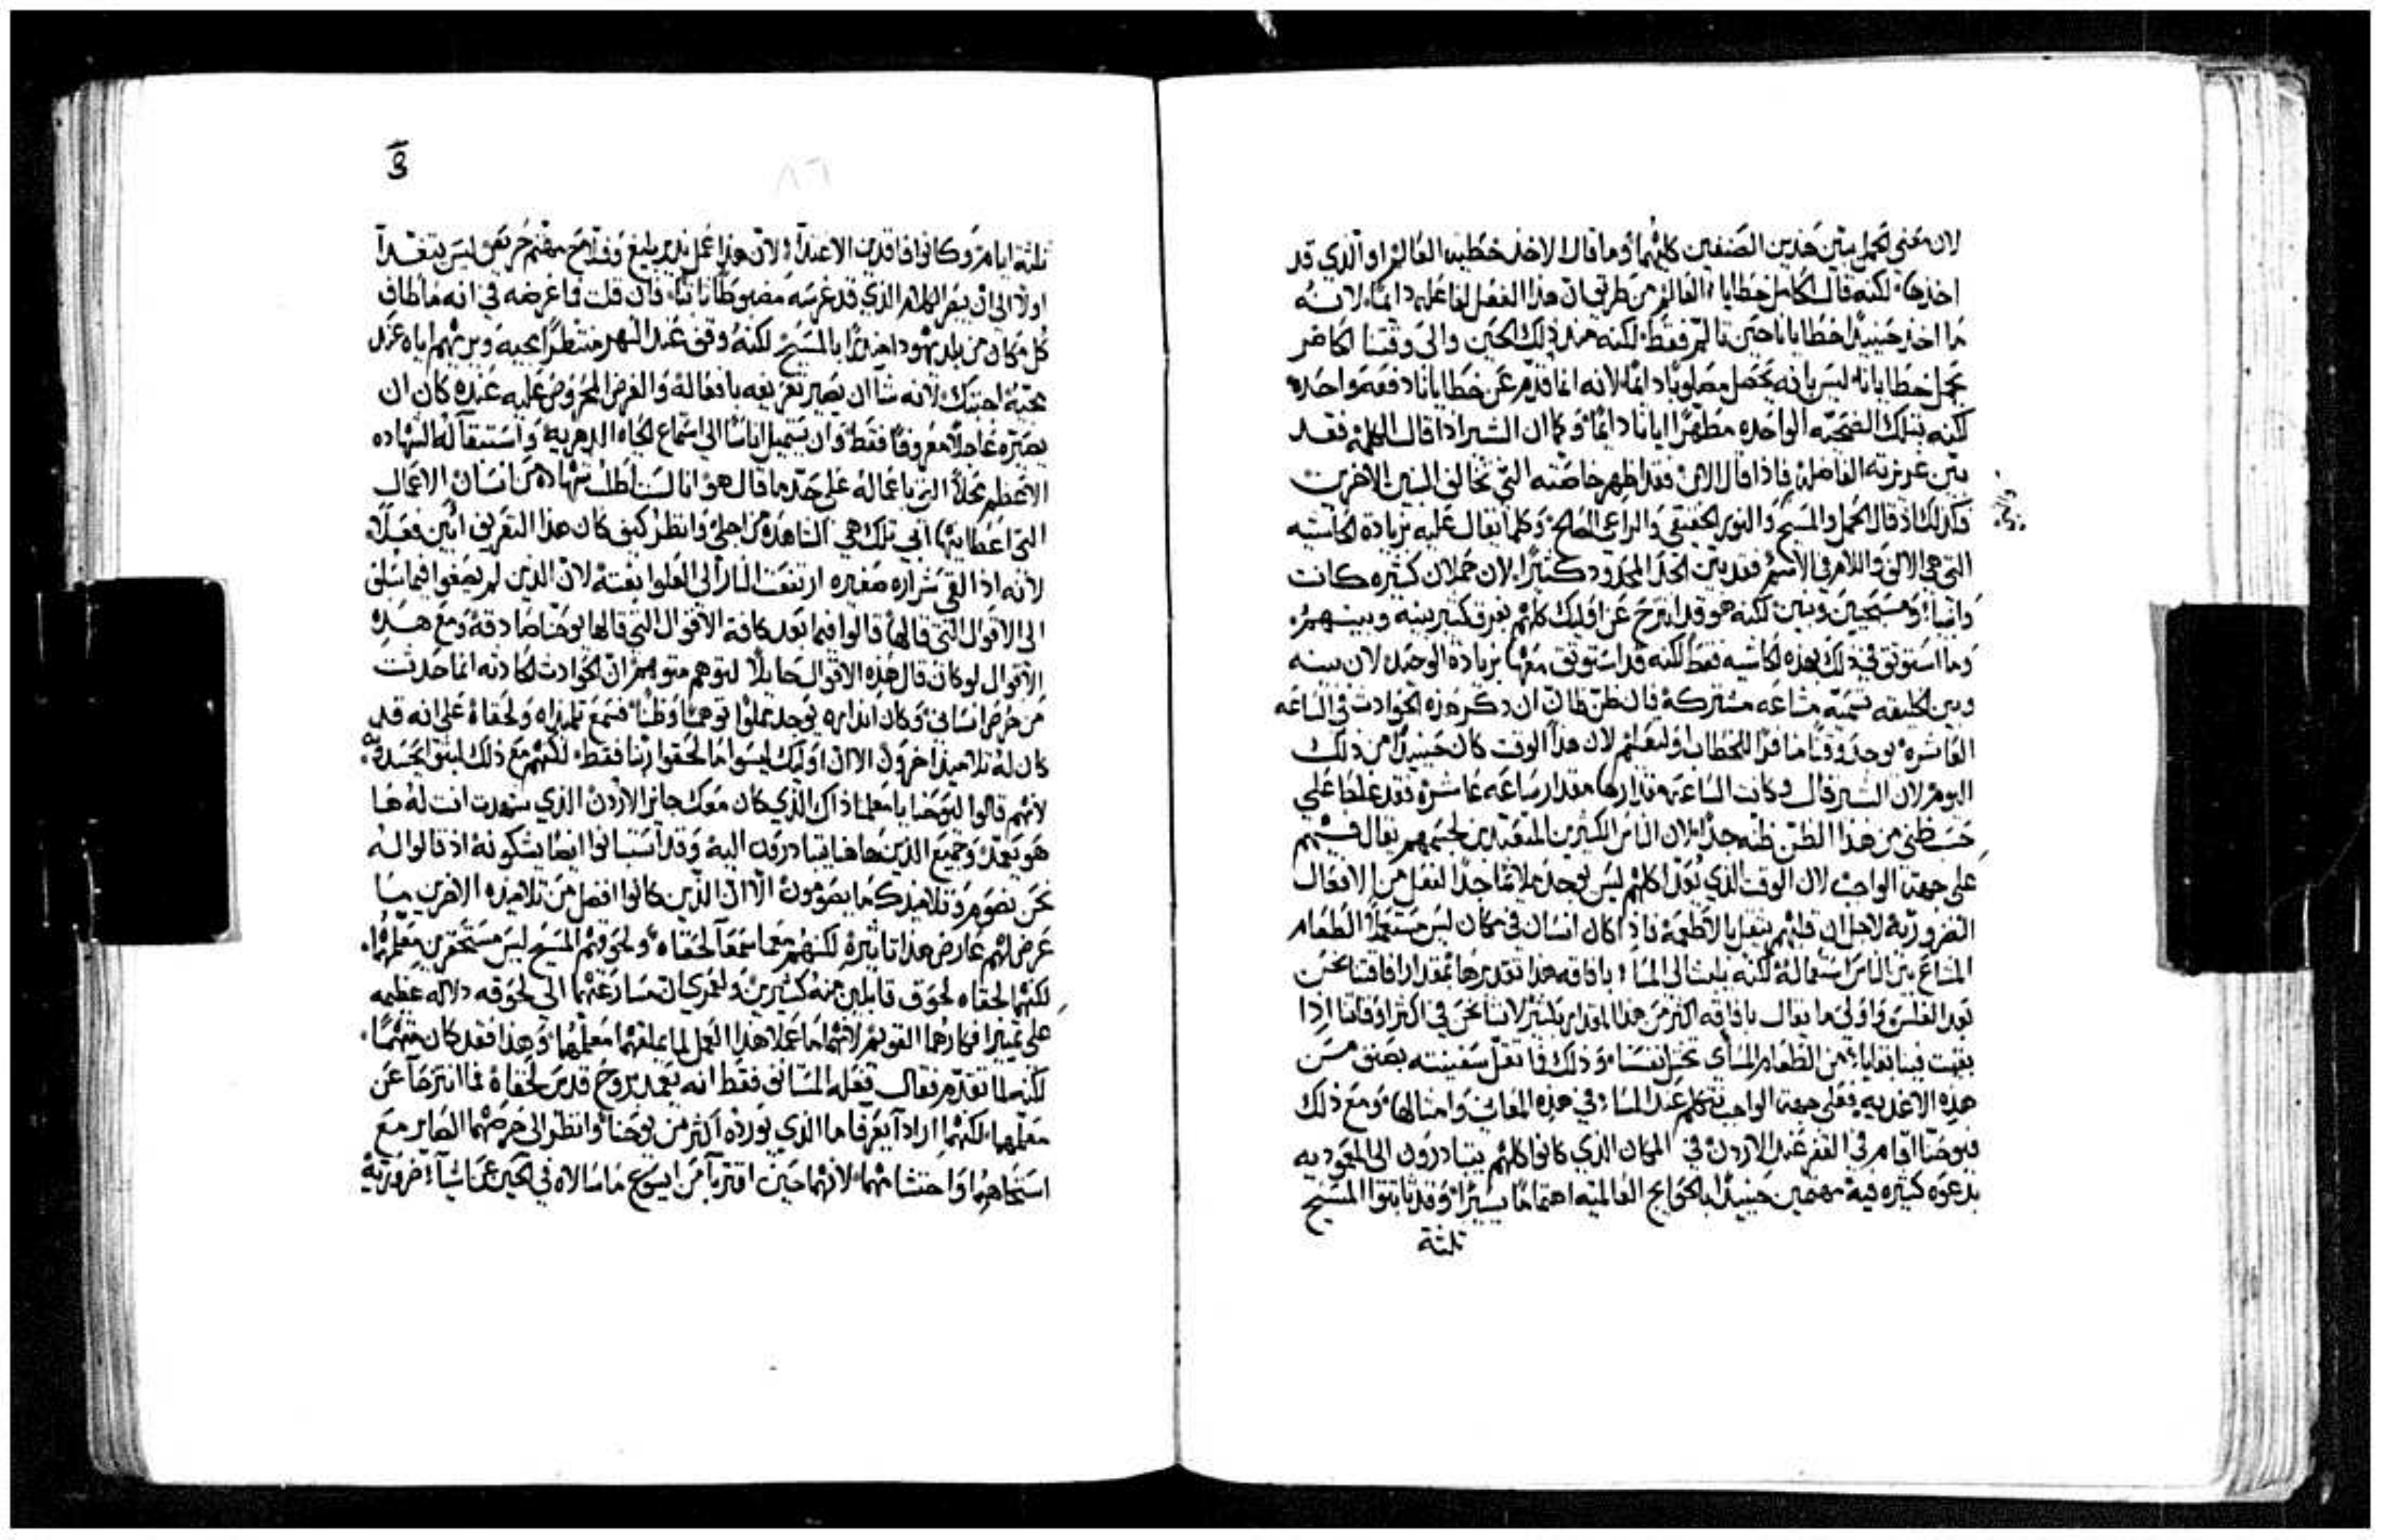 لان معنى الحمل يبين هذين الصنفين كليهما وما قال الاخذ خطية العالم او الذي قد
اخذها لكنه قال الحامل خطايا العالم من طريق ان هذا الفعل لفاعله دايمًا لانه
ما اخذ حينيذ خطايانا حين تالم فقط لكنه منذ ذلك الحين والى وقتنا الحاضر
يحمل خطايانا ليس بانه يحصل مصلوبًا دايمًا لانه انما قدم عن خطايانا دفعة واحده
لكنه بتلك الضحيه الواحده مطهرًا ايانا دايمًا وكما ان البشير اذا قال الكلمه فقد
بين غريزته الفاضله فاذا قال الابن فقد اظهر خاصته التي تخالف البنين الاخرين
فكذلك اذ قال الحمل والمسيح والنور الحقيقي والراعي الصالح وكلما يقال عليه بزيادة الحاشيه
التي هي الالف واللام في الاسم فقد بين الحد المحدود كثيرًا لان حملان كثيره كانت
وانبيا ومسيحيين وبنين لكنه هو قد انتزح عن اوليك كلهم بفرق كثير بينه وبينهم
وما استوثق في ذلك بهذه الحاشيه فقط لكنه قد استوثق معها بزيادة الوحيد لان بينه
وبين الخليقه تسميه مشاعه مشتركة فان ظن ظان ان ذكر هذه الحوادث في الساعه
العاشره يوجد وقتًا منافرًا للخطاب وليعلم لان هذا الوقت كان حينيذ من ذلك
اليوم لان البشير قال وكانت الساعه مقدارها مقدار ساعه عاشرة فقد غلط على
حسب ظني من هذا الظن ظنه جدًا لان الناس الكثيرين المتعبدين لجسمهم يقال فيهم
على جهة الواجب لان الوقت الذي بعد اكلهم ليس يوجد ملايمًا جدًا لفعل من الافعال
الضروريه لاجل ان قلبهم يثقل بالاطعمه فاذا كان انسان في مكان ليس مستعملًا الطعام
المشاع بين الناس استعماله لكنه يلبث الى المسا
بعد الغلس واولى ما يقال باقاقه اكثر من هذا المقدار بكثير لاننا نحن في اكثر اوقاتنا اذا
بقيت فينا بقايا من الطعام المسايى
هذه الاغذيه فعلى جهة الواجب نتكلم عند المسا في هذه المعاني وامثالها ومع ذلك
فيوحنا اقام في القفر عند الاردن في المكان الذي كانوا كلهم يتبادرون الى المعموديه
بدعوه كثيره فيه مهتمين حينيذ بالحوايج العالميه اهتمامًا يسيرًا وقد ثابتوا المسيح
ثلثة
ثلثة ايام وكانوا فاقدين الاغتذا لان هذا عمل نذير بليغ وفلاح مهتم حريص ليس يتعدا
اولًا الى ان يبصر الكلام الذي قد غرسه مضبوطًا ثابتًا فان قلت فما غرضه في انه ما طاف
كل مكان من بلد يهودا منذرًا بالمسيح لكنه وقف عند النهر منتظرًا مجيه ويريهم اياه عند
مجيه اجبتك لانه شا ان يصير تعريفه بافعاله والغرض المحروص عليه عنده كان ان
يصيره عاجلًا معروفًا فقط وان يستميل اناسًا الى استماع الحياه الدهريه واستبقا له الشهاده
الاعظم محلًا التي باعماله على حد ما قال هو انا لست اطلب شهادة من انسان الاعمال
التي اعطانيها ابي تلك هي الشاهدة من اجلي وانظر كيف كان هذا التعريف ابين فعلًا
لانه اذا القي شراره صغيره ارتفعت النار الى العلوا بغته لان الذين لم يصغوا فيما سلف
الى الاقوال التي قالها قالوا فيما بعد كافة الاقوال التي قالها يوحنا صادقه ومع هذه
الاقوال لو كان قال هذه الاقوال جايلًا لتوهم متوهم ان الحوادث الحادثه انما حدثت
من حرص انساني وكان انذاره يوجد مملوًا توهمًا وظنًا فسمع تلميذاه ولحقاه على انه قد
كان له تلاميذ اخرون الا ان اوليك ليسوا ما لحقوا ربنا فقط لكنهم مع ذلك لبثوا يحسدونه
لانهم قالوا ليوحنا يا معلم ذاك الذي كان معك جايز الاردن الذي شهدت انت له ها
هو يعمد وجميع الذين هاهنا يتبادرون اليه وقد استبانوا ايضًا يشكونه اذ قالوا له
نحن نصوم وتلاميذك ما يصومون الا ان الذين كانوا افضل من تلاميذه الاخرين ما
عرض لهم عارض هذا تاثيره لكنهم معا سمعا لحقاه ولحوقهم المسيح ليس مستحقرين معلمهما
لكنهما لحقاه لحوق قابلين منه كثيرين ولعمري ان مسارعتهما الى لحوقه دلاله عظيمه
على تمييز افكارهما القويم لانهما ما عملا هذا العمل لما علقهما معلمهما وهذا فقد كان متهمًا
لكنه لما تقدم فقال فعله المستانف فقط انه يعمد بروح قدس لحقاه فما انتزحا عن
معلمهما لكنهما ارادا يعرفا ما الذي يورده اكثر من يوحنا وانظر الى حرصهما الصاير مع
استحاهما واحتشامهما لانهما حين اقتربا من ايسوع ما سالاه في الحين عن اشيا ضروريه